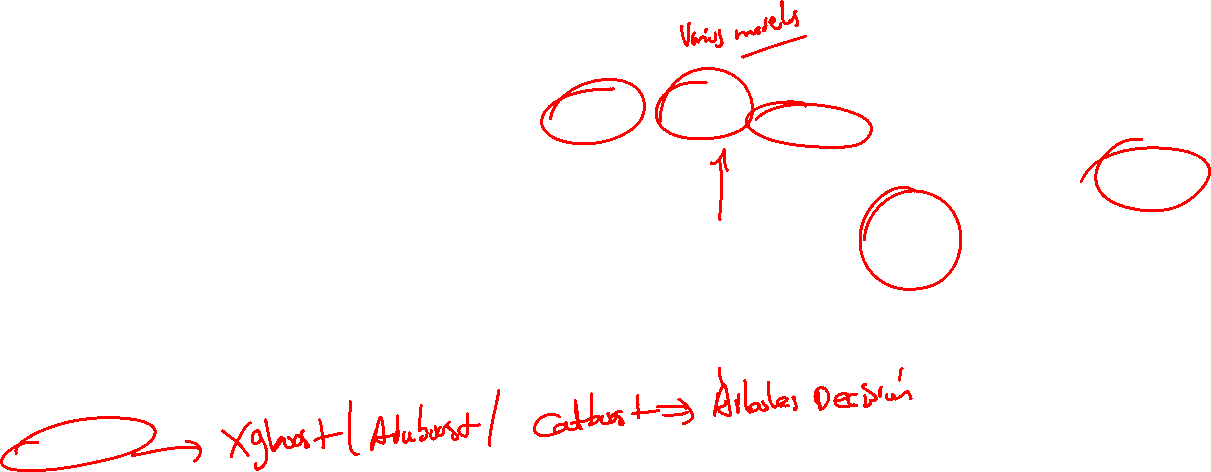 Varios models
Xgboost / Adaboost / Catboost ⇒ Árboles Decisión